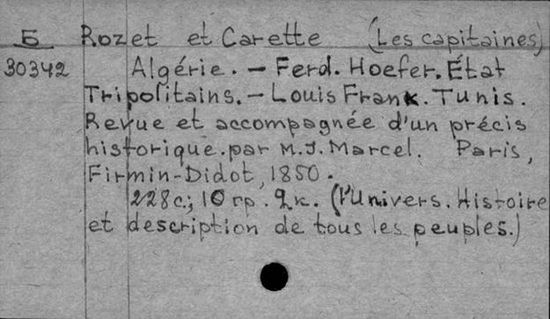 Б Rozet et Carette (Les capitaines)
30342 Algérie. — Ferd. Hoefer. État
Tripolitains. — Louis Frank. Tunis.
Revue et accompagnée d'un précis
historique par M.J. Marcel. Paris,
Firmin-Didot, 1850.
228c.; 10 гр. 2к. (l'Univers. Histoire
et description de tous les peuples.)